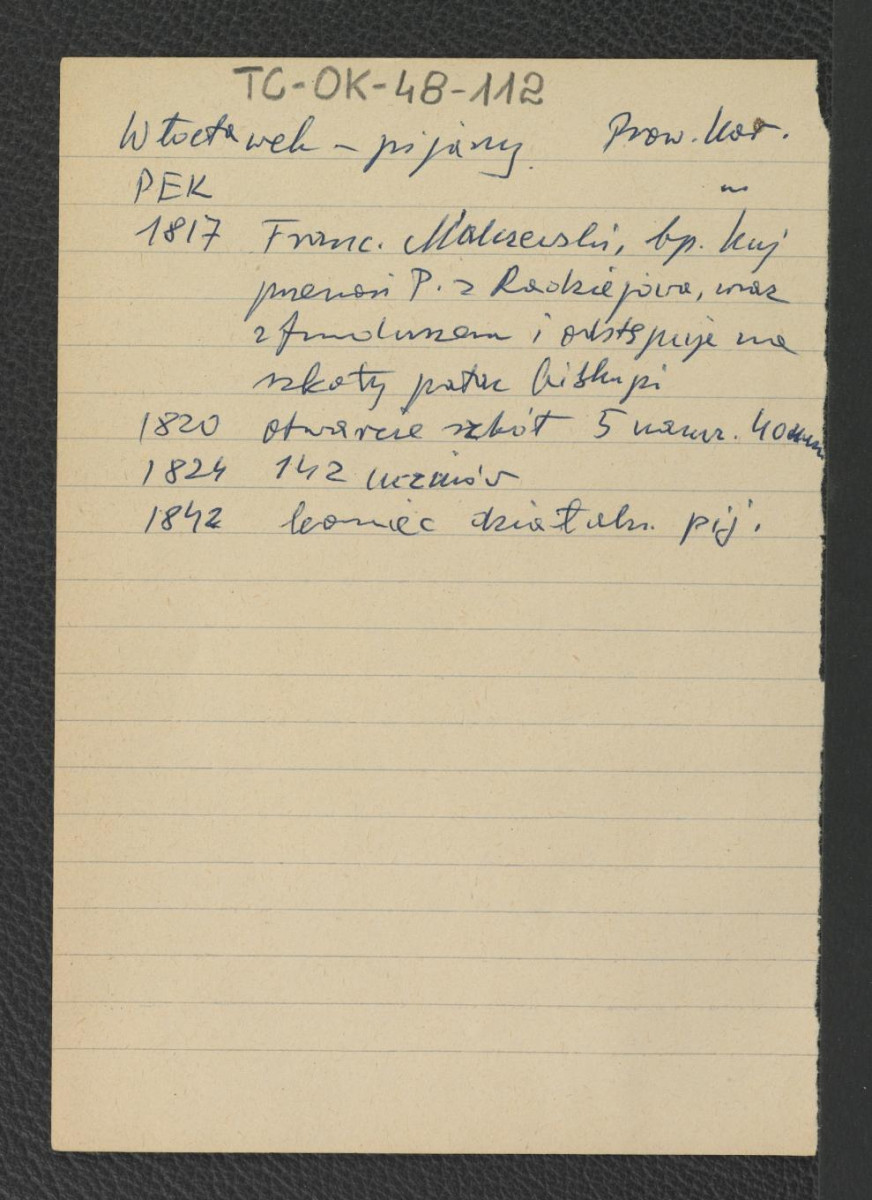 TC-OK-48-112
Włocławek – pijarzy Prow. Kor.
PEK
1817 Franc. Malczewski, bp. kuj
przenosi P. z Radziejowa, wraz
z funduszem i odstępuje na
szkoły pałac biskupi
1820 otwarcie szkół 5 naucz. 40 uczn
1824 142 uczniów
1842 koniec działaln. pij.